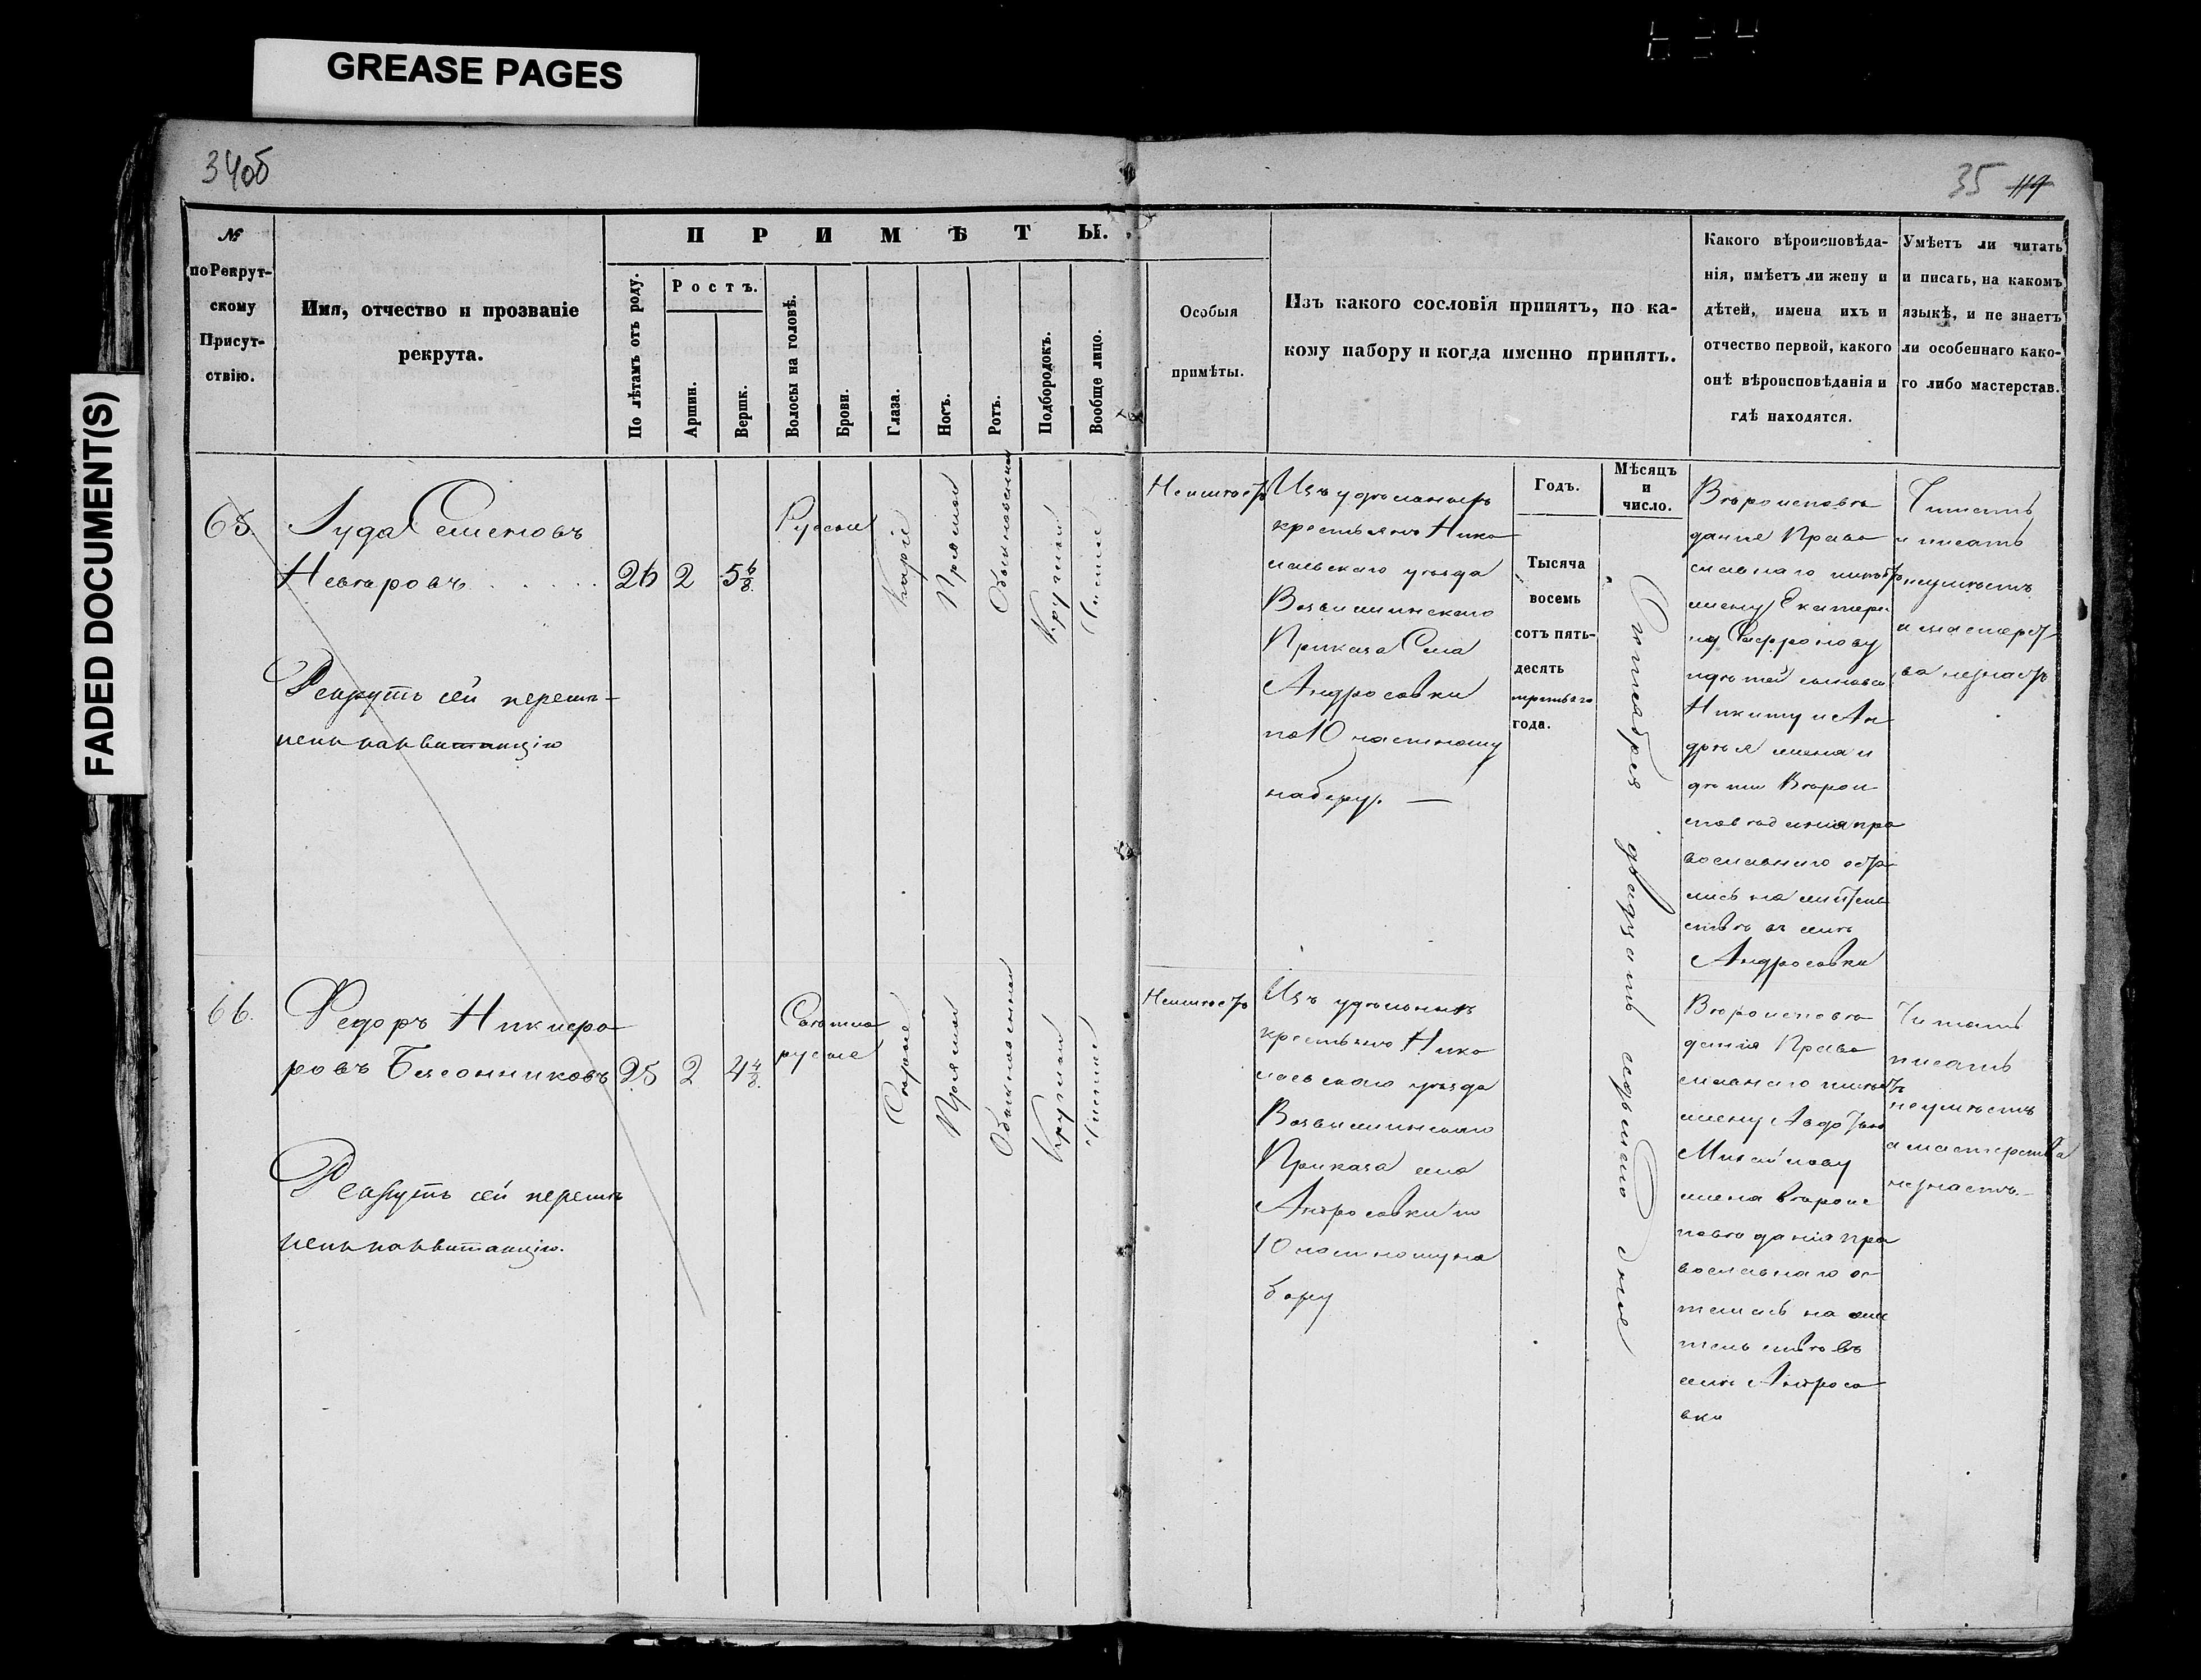 GREASE PAGES
FADED DOCUMENT(S)
34об
35 119
№
по Рекрут-
скому
Присут-
ствію.
Имя, отчество и прозваніе
рекрута.
ПРИМѢТЫ.
По лѣтамъ отъ роду.
Ростъ.
Аршин.
Вершк.
Волосы на головѣ.
Брови.
Глаза.
Носъ.
Ротъ.
Подбородокъ.
Вообще лицо.
Особыя
примѣты.
Изъ какого сословія принятъ, по ка-
кому набору и когда именно принятъ.
Какого вѣроисповѣда-
нія, имѣетъ ли жену и
дѣтей, имена ихъ и
отчество первой, какого
онѣ вѣроисповѣданія и
гдѣ находятся.
Умѣетъ ли читать
и писать, на какомъ
языкѣ, и не знаетъ
ли особеннаго како-
го либо мастерстав.
65.
Іуда Семеновъ
26 2 5 6/8.
Рекрутъ сей перемѣ-
ненъ на квитанцію
Русые
Каріе
Прямой
Обыкновенный
Круглый
Чистое
Неимѣетъ
Изъ удѣльныхъ
крестьянъ Нико
лаевскаго уѣзда
Приказа Села
Андросовки
по 10 частному
набору. —
Годъ.
Тысяча
восемь
сотъ пять-
десятъ
третьяго
года.
Мѣсяцъ
и
число.
двадцать седьмаго дня
Вѣроисповѣ
данія Право
славнаго имѣетъ
жену Екатери
ну Сафронову
и дѣтей сыновей
Никиту и Ан
дрея жена и
дѣти Вѣрои
сповѣданія пра
вославнаго оста
лись на житель
ствѣ въ селѣ
Андросовки
Читать
и писать
неумѣетъ
а мастерст
ва незнаетъ
66.
Федоръ Никифо
ровъ
25 2 4 4/8.
Рекрутъ сей перемѣ
ненъ на квитанцію.
Свѣтло
русые
Сѣрые
Прямый
Обыкновенный
Круглый
Чистое
Неимѣетъ
Изъ удѣльныхъ
крестьянъ Нико
лаевскаго уѣзда
Приказа села
Андросовки по
10 частному на
бору
Вѣроисповѣ
данія Право
славнаго имѣетъ
жену Авдотью
Михайлову
жена вѣроис
повѣданія пра
вославнаго ос
талась на жи
тельствѣ въ
селѣ Андросо
вки
Читать
писать
неумѣетъ
а мастерства
незнаетъ